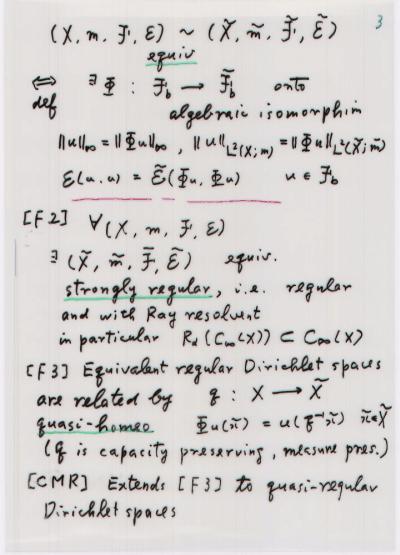 3
(X, m, ℱ, ℰ) ~ (X̃, m̃, ℱ̃, ℰ̃)
equiv
⟺ ∃ Φ : ℱ_b → ℱ̃_b onto
def algebraic isomorphim
‖u‖_∞ = ‖Φu‖_∞ , ‖u‖_{L²(X;m)} = ‖Φu‖_{L²(X̃;m̃)}
ℰ(u,u) = ℰ̃(Φu, Φu) u ∈ ℱ_b
[F2] ∀(X, m, ℱ, ℰ)
∃ (X̃, m̃, ℱ̃, ℰ̃) equiv.
strongly regular, i.e. regular
and with Ray resolvent
in particular R_α(C_∞(X)) ⊂ C_∞(X)
[F3] Equivalent regular Dirichlet spaces
are related by q : X → X̃
quasi-homeo Φu(x̃) = u(q⁻¹x̃) x̃ ∈ X̃
(q is capacity preserving, measure pres.)
[CMR] Extends [F3] to quasi-regular
Dirichlet spaces